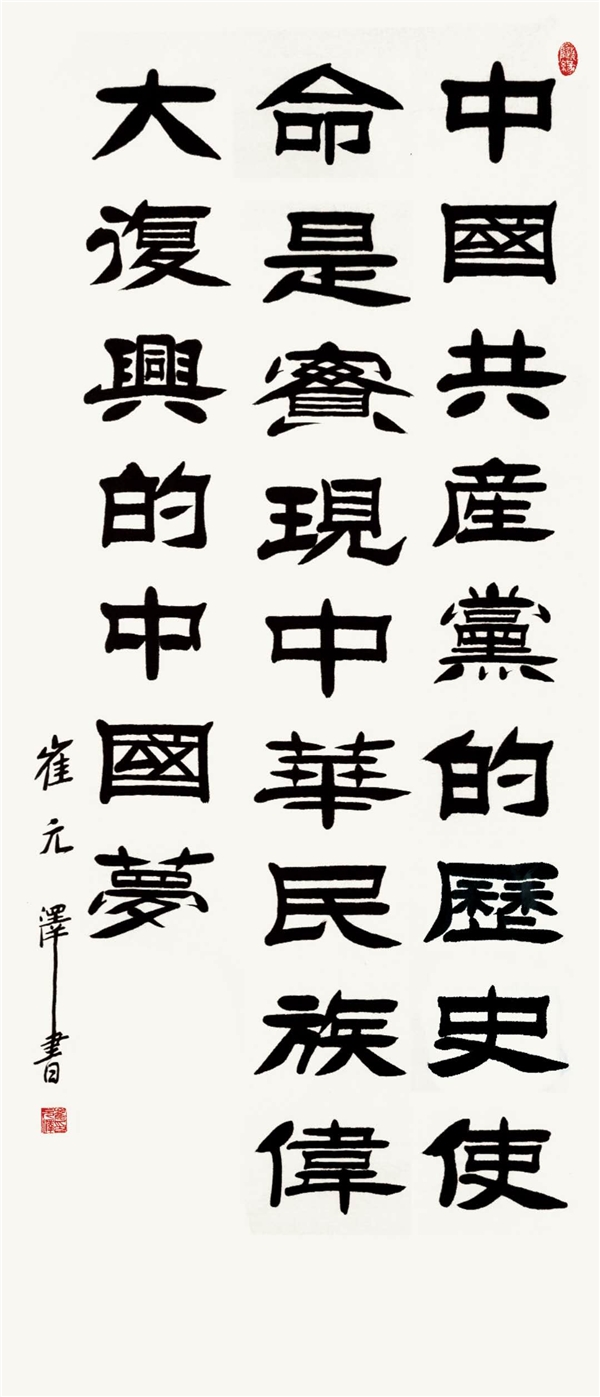 中國共産黨的歷史使
命是實現中華民族偉
大復興的中國夢
崔元澤書